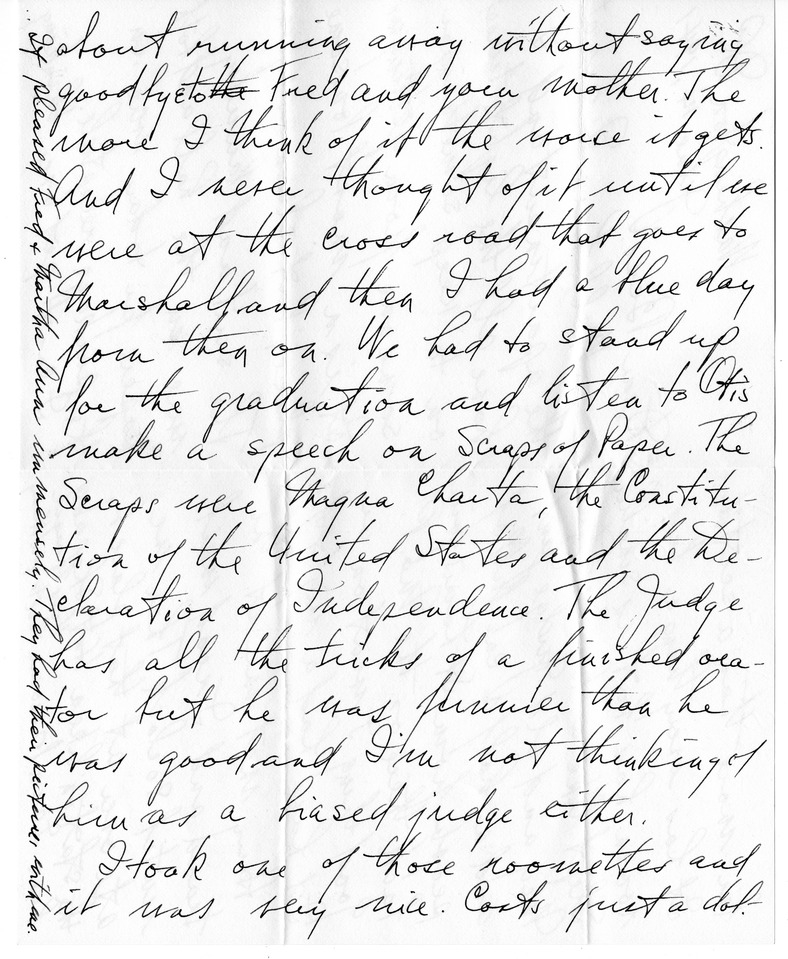 about running away without saying
goodbye to the Fred and your mother. The
more I think of it the worse it gets.
And I never thought of it until we
were at the cross road that goes to
Marshall, and then I had a blue day
from then on. We had to stand up
for the graduation and listen to Otis
make a speech on Scraps of Paper. The
Scraps were Magna Charta, the Constitu-
tion of the United States and the De-
claration of Independence. The Judge
has all the tricks of a finished ora-
tor but he was funnier than he
was good and I'm not thinking of
him as a biased judge either.
I took one of those roomettes and
it was very nice. Costs just a dol-
It pleased Fred & Martha Ann immensely. They had their pictures with me.